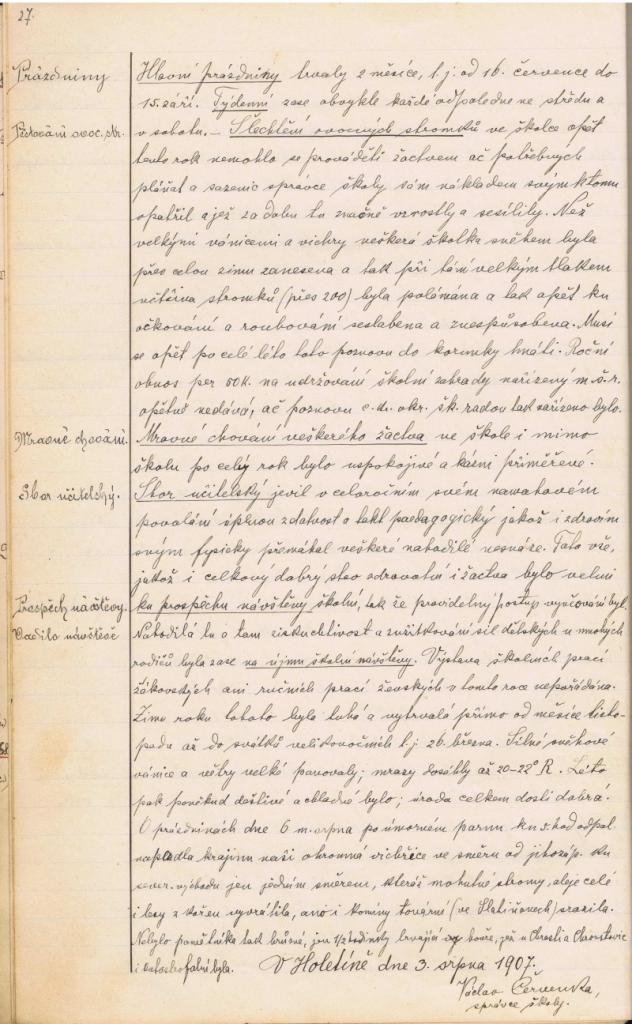 27.
Prázdniny
Hlavní prázdniny trvaly 2 měsíce, t. j. od 16. července do
15. září. Týdenní zase obvykle každé odpoledne ve středu a
Pěstování ovoc. str.
v sobotu. – Šlechtění ovocných stromků ve školce opět
tento rok nemohlo se prováděti žactvem ač potřebných
pláňat a sazenic správce školy sám nákladem svým k tomu
opatřil a jež za dobu tu značně vzrostly a sesílily. Než
velkými vánicemi a vichry veškerá školka sněhem byla
přes celou zimu zanesena a tak při tom velkým tlakem
většina stromků (přes 200) byla polámána a tak opět ku
očkování a roubování seslabena a znespůsobena. Musí
se opět po celé léto toto poznovu do korunky hnáti. Roční
obnos per 50 K. na udržování školní zahrady nařízený m. š. r.
opětně nedává, ač poznovu c. k. okr. šk. radou tak nařízeno bylo.
Mravné chování.
Mravné chování veškerého žactva ve škole i mimo
školu po celý rok bylo uspokojivé a kázni přiměřené.
Sbor učitelský.
Sbor učitelský jevil v celoročním svém namahavém
povolání úplnou zdatnost a takt paedagogický jakož i zdravím
svým fysicky přemáhal veškeré nahodilé nesnáze. Toto vše,
jakož i celkový dobrý stav zdravotní i žactva bylo velmi
Prospěch návštěvy.
ku prospěchu návštěvy školní, tak že pravidelný postup vyučování byl.
Vadilo návštěvě
Nahodilá tu a tam zištuchtivost a zužitkování sil dětských u mnohých
rodičů byla zase na újmu školní návštěvy. Výstava školních prací
žákovských ani ručních prací ženských v tomto roce nepořádána.
Zima roku tohoto byla tuhá a vytrvalá přímo od měsíce listo-
padu až do svátků velikonočních t. j. 26. března. Silné sněhové
vánice a větry velké panovaly; mrazy dosáhly až 20–22° R. Léto
pak poněkud deštivé a chladné bylo; úroda celkem dosti dobrá.
O prázdninách dne 6 m. srpna po úmorném parnu ku 5 hod odpol.
napadla krajinu naši ohromná vichřice ve směru od jihozáp. ku
sever. východu jen jedním směrem, kteráž mohutné stromy, aleje celé
i lesy z kořen vyvrátila, ano i komíny tovární (ve Slatiňanech) srazila.
Nebylo pamětníka tak hrůzné, jen 1/2 hodinky trvající bouře, jež u Chrasti a
i katastrofální byla.
V Holetíně dne 3. srpna 1907.
Václav Červenka,
správce školy.